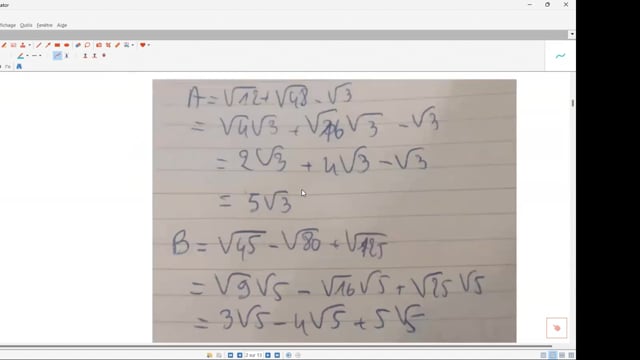 ator
ffichage Outils Fenêtre Aide
A = √12 + √48 - √3
= √4√3 + √16√3 - √3
= 2√3 + 4√3 - √3
= 5√3
B = √45 - √80 + √125
= √9√5 - √16√5 + √25√5
= 3√5 - 4√5 + 5√5
2 sur 13